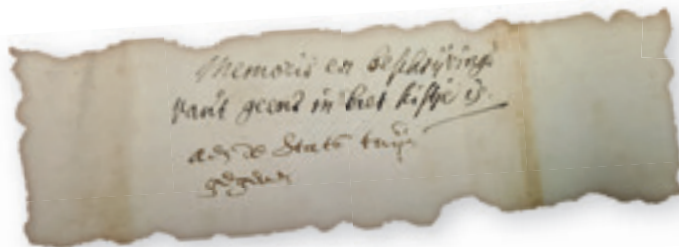 Memorie en beschrijvinge
van't geene in het kistje is.
aen de Stats tuijn
gegeven